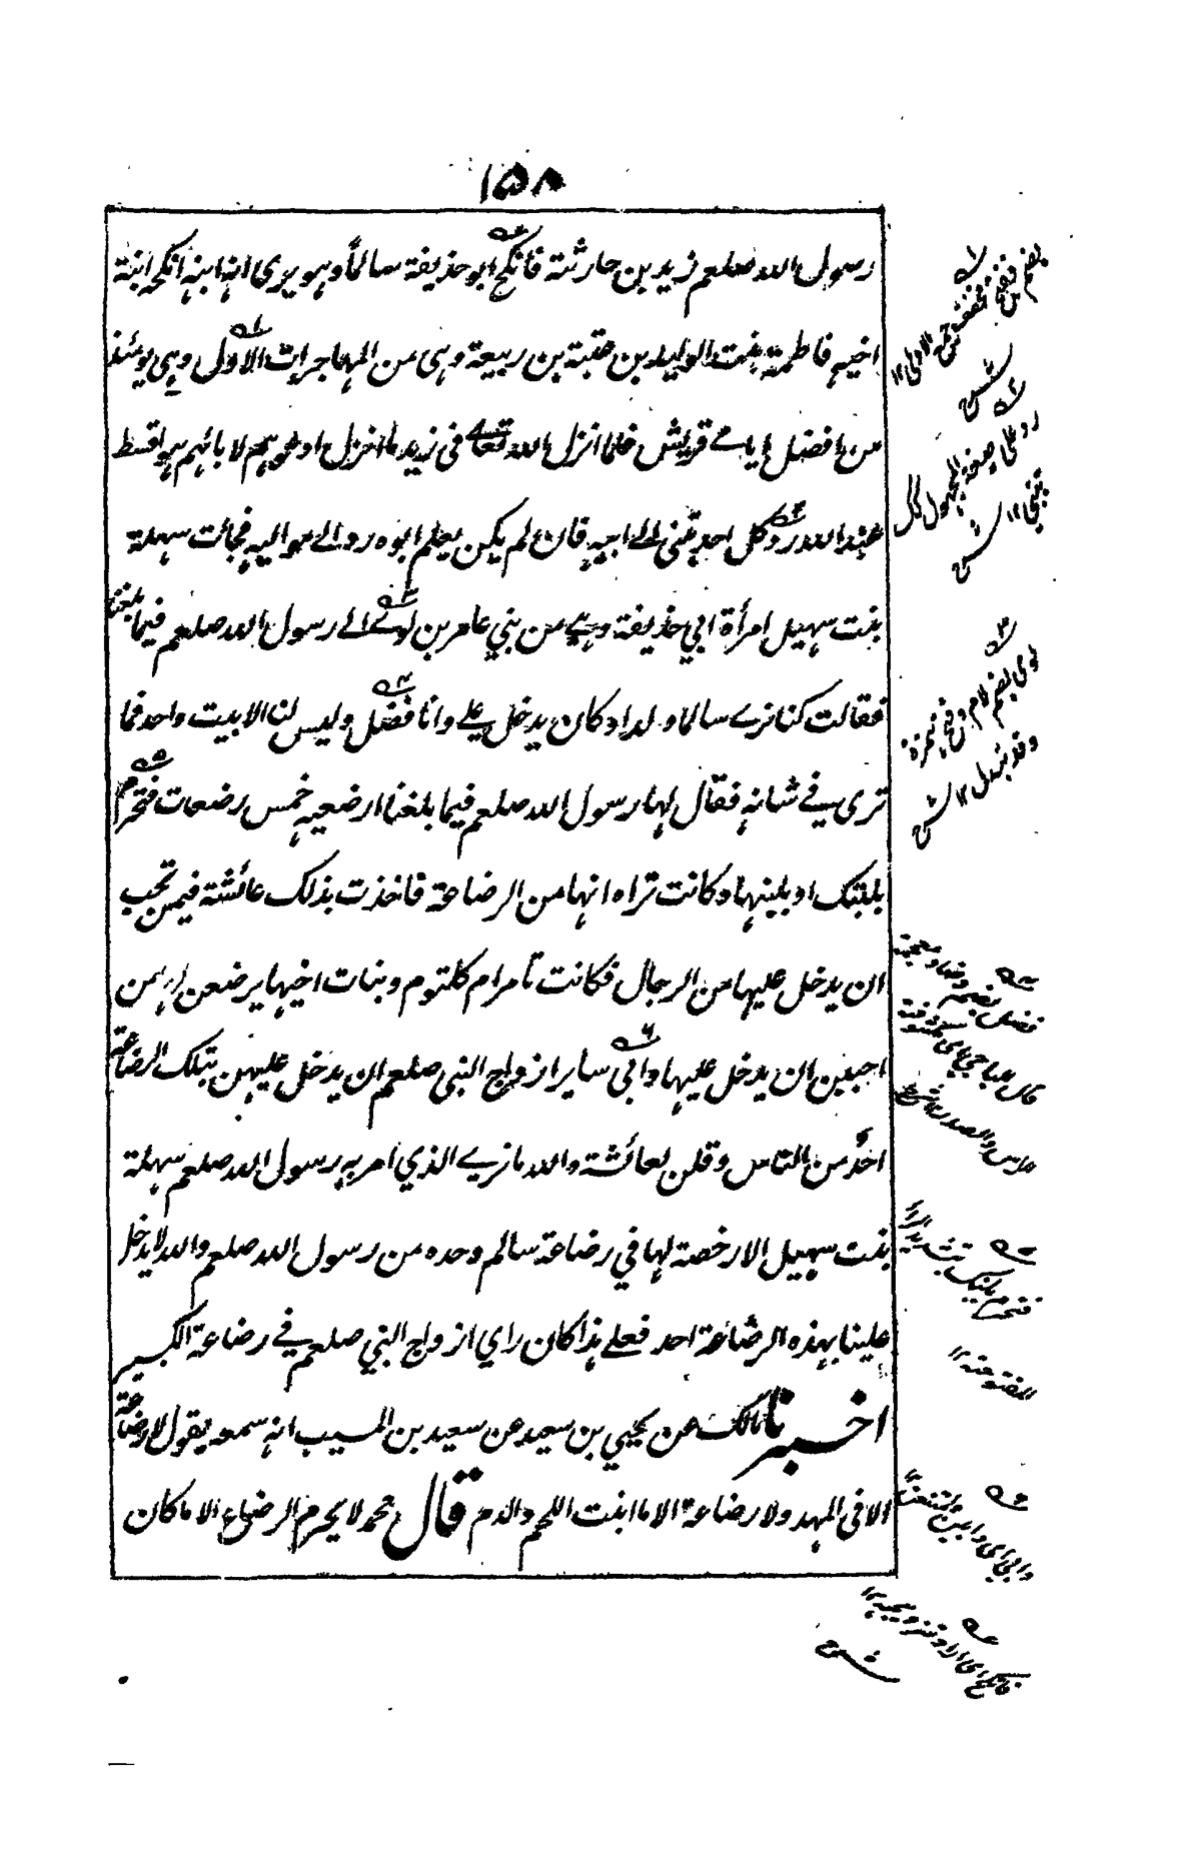 ١٥٨
رسول الله صلعم زيد بن حارثة فانكح ابو حذيفة سالماً وهو يرى انه ابنه انكحه ابنة
اخيه فاطمة بنت الوليد بن عتبة بن ربيعة وهى من المهاجرات الاول وهى يومئذ
من افضل ايامى قريش فلما انزل الله تعالى فى زيد ما انزل ادعوهم لابائهم هو اقسط
عند الله رد كل احد تبنى الى ابيه فان لم يكن يعلم ابوه رد الى مواليه فجائت سهلة
بنت سهيل امرأة ابي حذيفة وهي من بني عامر بن لوى الى رسول الله صلعم فيما بلغنا
فقالت كنا نرى سالما ولدا وكان يدخل علي وانا فضل وليس لنا الا بيت واحد فما
ترى في شانه فقال لها رسول الله صلعم فيما بلغنا ارضعيه خمس رضعات فتحرم
بلبنك او بلبنها وكانت تراه ابنها من الرضاعة فاخذت بذلك عائشة فيمن تحب
ان يدخل عليها من الرجال فكانت تأمر ام كلثوم وبنات اخيها يرضعن لها من
احببن ان يدخل عليها وابى ساير ازواج النبى صلعم ان يدخل عليهن بتلك الرضاعة
احدٌ من الناس وقلن لعائشة والله ما نرى الذي امر به رسول الله صلعم سهلة
بنت سهيل الا رخصة لها في رضاعة سالم وحده من رسول الله صلعم والله لا يدخل
علينا بهذه الرضاعة احد فعلى هذا كان راي ازواج النبي صلعم في رضاعة الكبير
اخبرنا مالك عن يحيي بن سعيد عن سعيد بن المسيب انه سمعه يقول لا رضاعة
الا فى المهد ولا رضاعة الا ما انبت اللحم والدم قال محمد لا يحرم الرضاع الا ما كان
رد على صيغة المجهول كل
تبنى ١٢
لوى بضم لام وفتح همزة
وقد تبدل ١٢ ش
المفتوحة ١٢